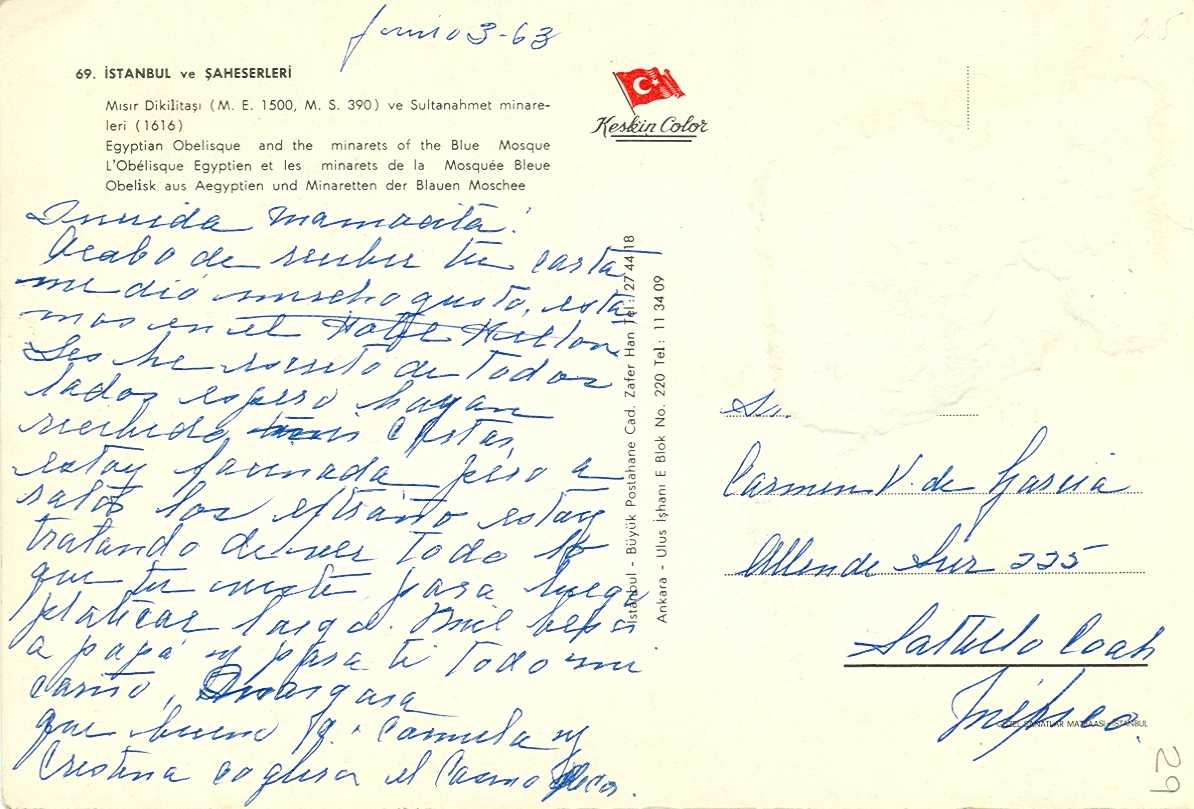 Junio 3-63
69. İSTANBUL ve ŞAHESERLERİ
Mısır Dikilitaşı (M. E. 1500, M. S. 390) ve Sultanahmet minare-
leri (1616)
Egyptian Obelisque and the minarets of the Blue Mosque
L'Obélisque Egyptien et les minarets de la Mosquée Bleue
Obelisk aus Aegyptien und Minaretten der Blauen Moschee
Keskin Color
Querida Mamacita:
Acabo de recibir tu carta
me dió mucho gusto, esta
mos en el Hotel Hilton
Les he escrito de todos
lados espero hayan
recibido mis cartas,
estoy fascinada pero a
ratos los extraño estoy
tratando de ver todo lo
que tu viste para luego
platicar largo. Mil besos
a papá y para ti todo mi
cariño,
que bueno q. Carmela y
Cristina el
İstanbul - Büyük Postahane Cad. Zafer Han Tel: 27 44 18
Ankara - Ulus İşhanı E Blok No. 220 Tel: 11 34 09
25
Sr.
Carmen V. de Garcia
Allende Sur 235
Saltillo Coah
México.
GÜZEL SANATLAR MATBAASI - İSTANBUL
29